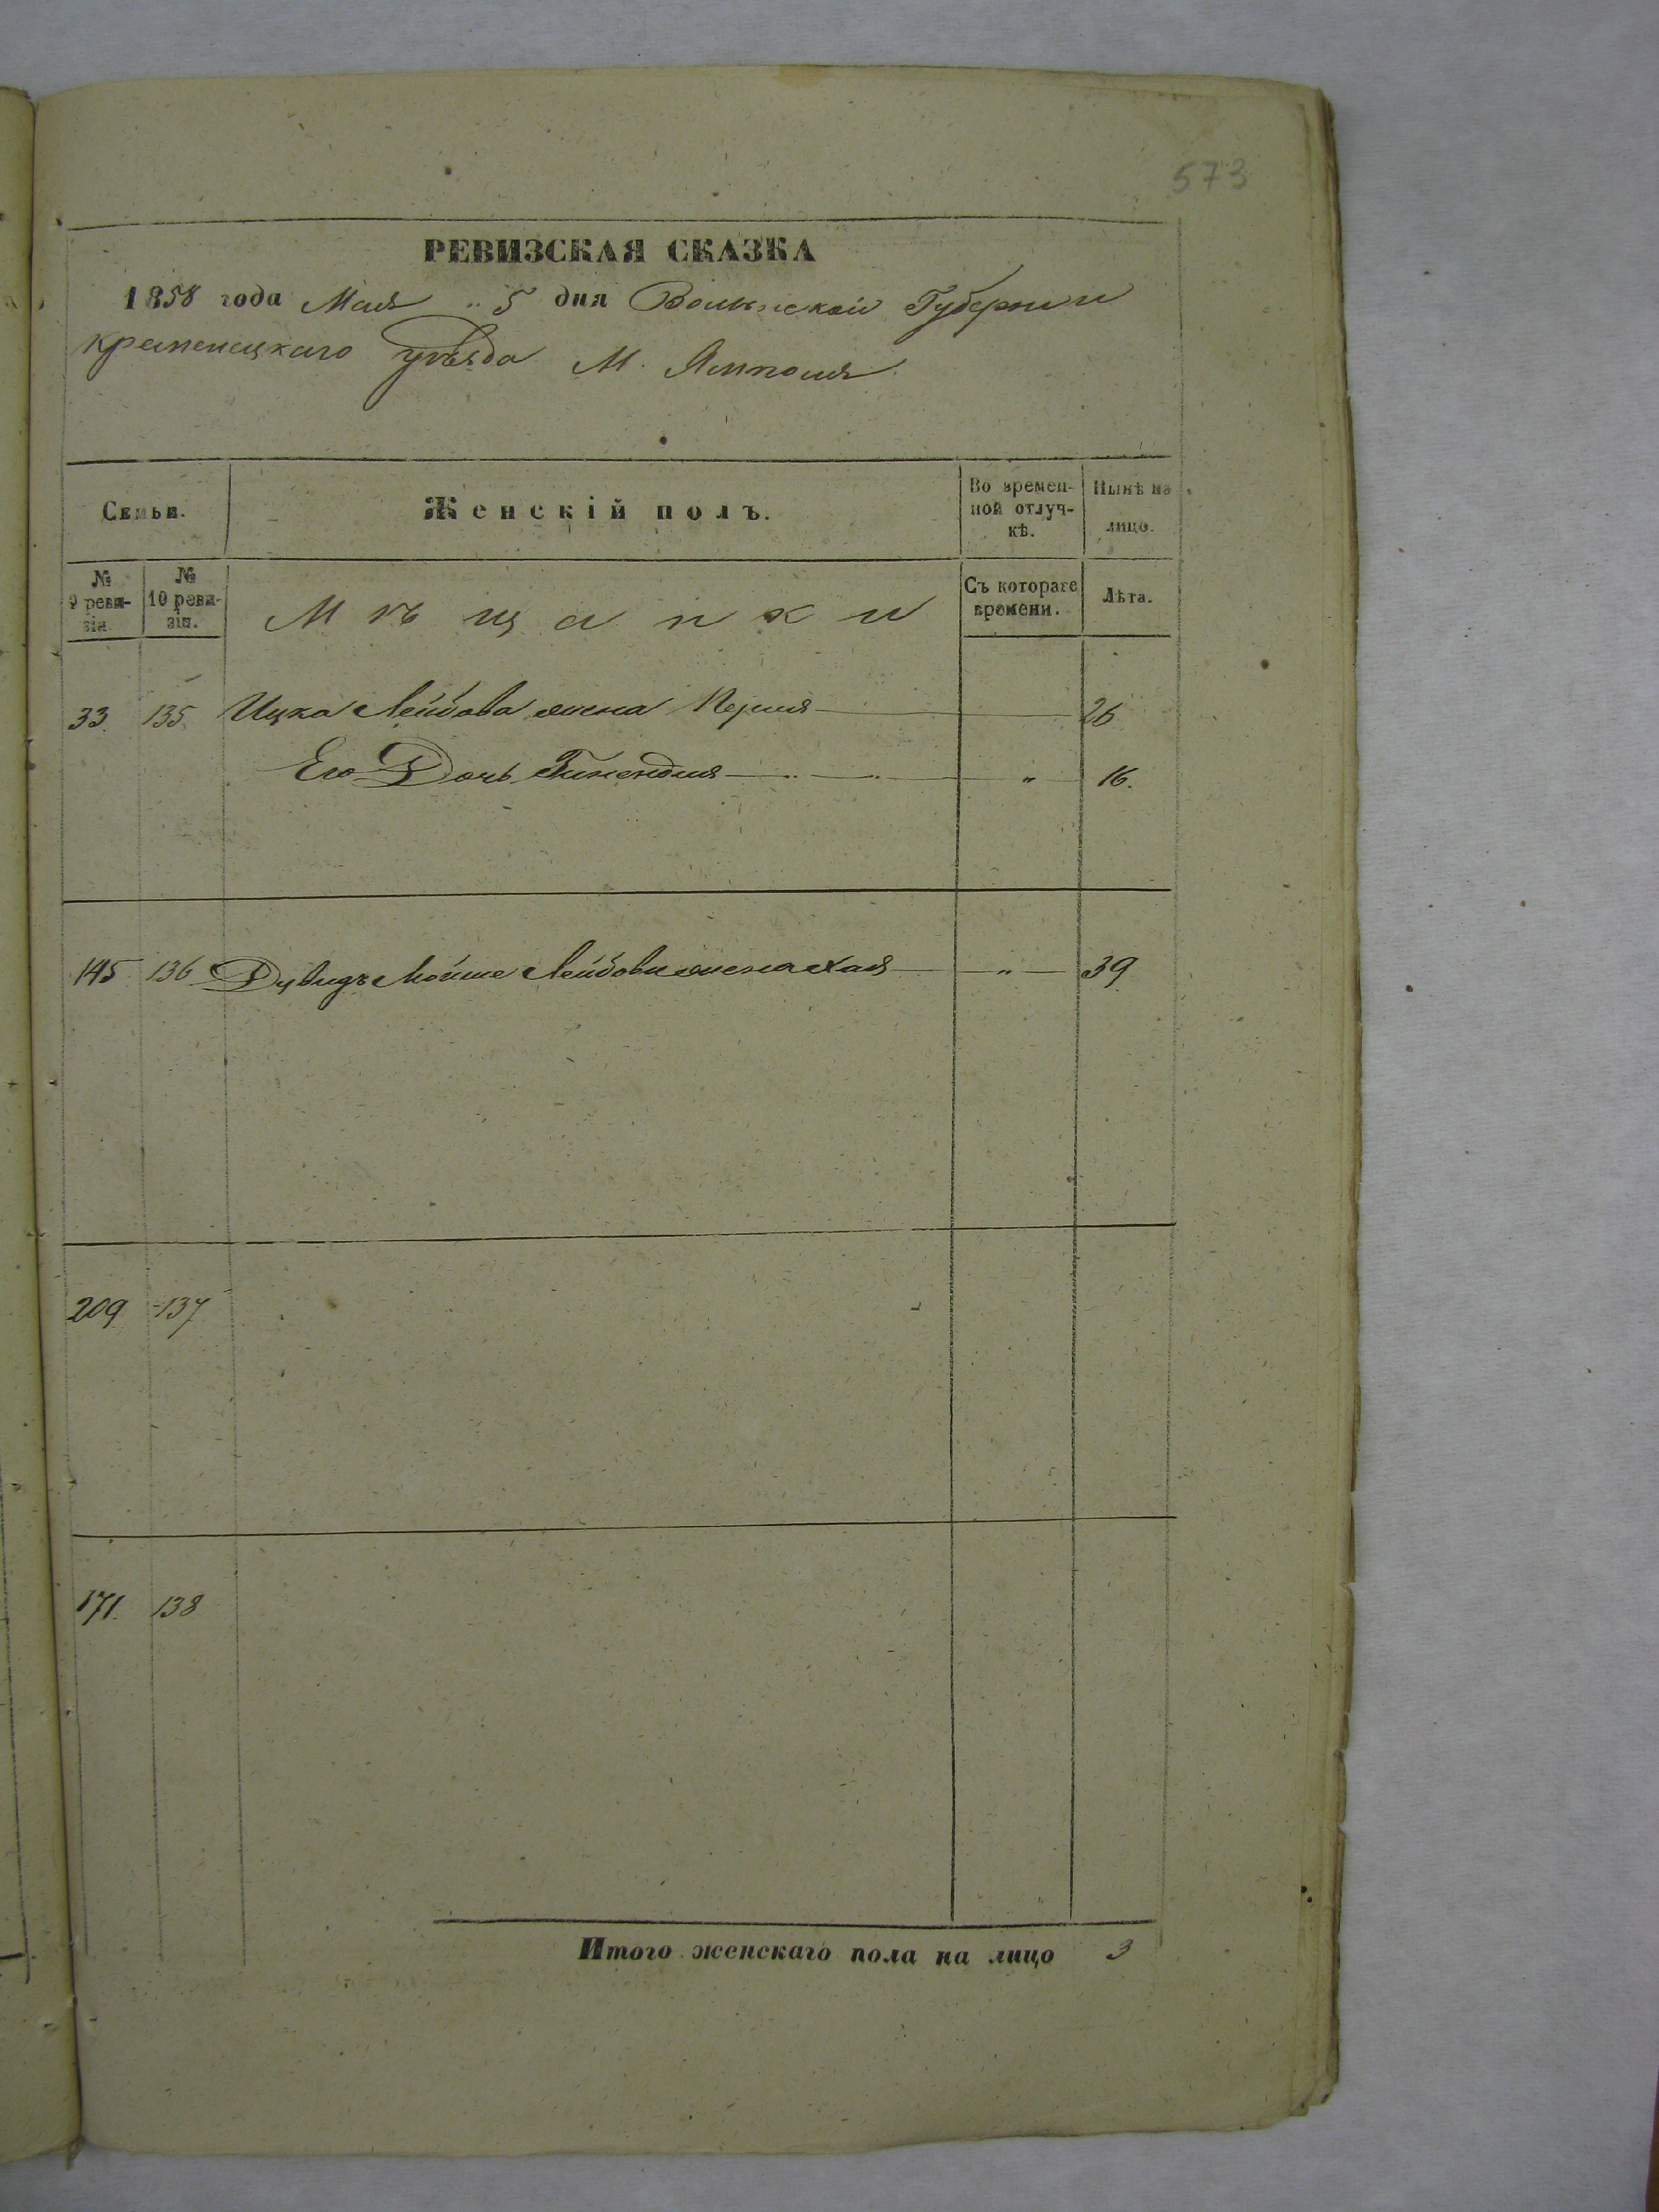 573
РЕВИЗСКАЯ СКАЗКА
1858 года Мая „ 5 дня Волынской Губернии
кременецкаго уѣзда М. Ямполя
Семьи.
Женскій полъ.
Во времен-
ной отлуч-
кѣ.
Нынѣ на
лицо.
№
9 реви-
зіи.
№
10 реви-
зіи.
Мѣщанки
Съ котораго
времени.
Лѣта.
33. 135. Ицка Лейбова жена Перля 26
Его Дочь „ 16.
145 136 Дувидъ Мойше Лейбова жена Хая „ 39
209 137
171. 138
Итого женскаго пола на лицо 3